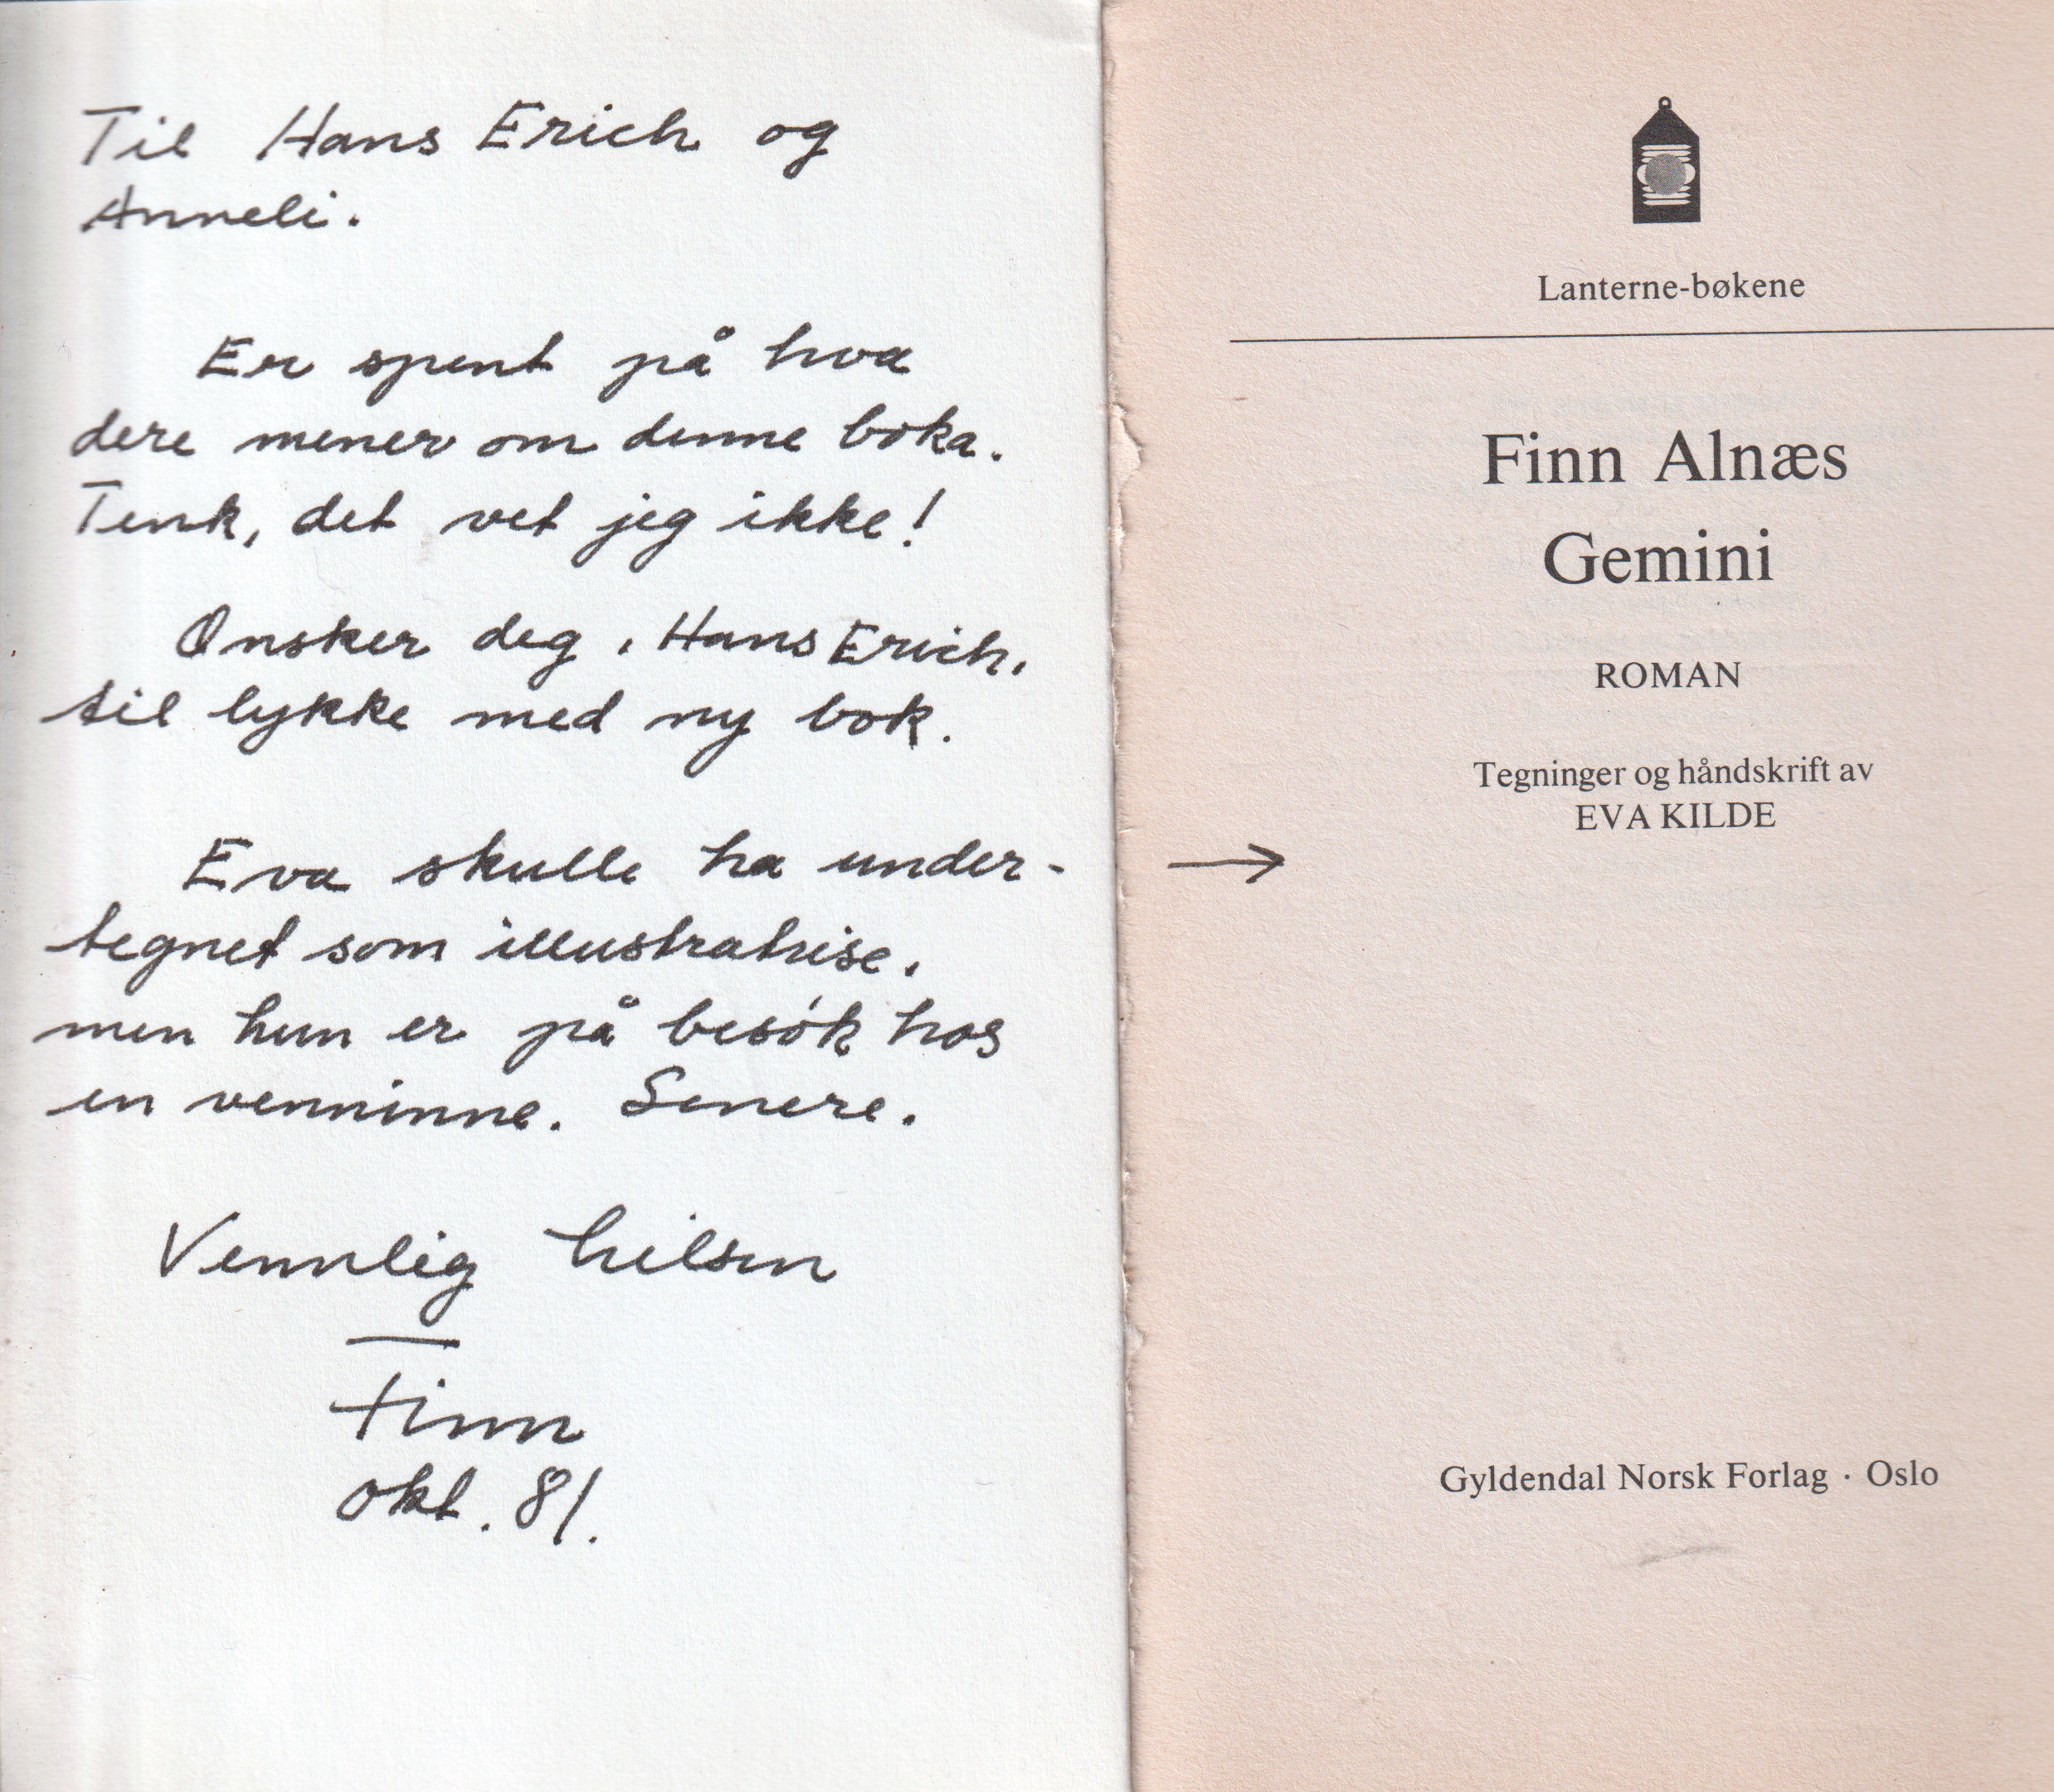 Til Hans Erich og
Anneli.
Er spent på hva
dere mener om denne boka.
Tenk, det vet jeg ikke!
Ønsker deg, Hans Erich,
til lykke med ny bok.
Eva skulle ha under-
tegnet som illustratrise,
men hun er på besøk hos
en venninne. Senere.
Vennlig hilsen
Finn
okt. 81.
Lanterne-bøkene
Finn Alnæs
Gemini
ROMAN
Tegninger og håndskrift av
EVA KILDE
Gyldendal Norsk Forlag · Oslo